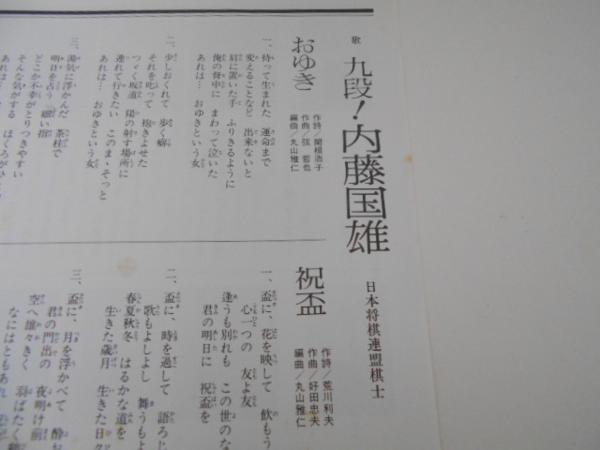 歌 九段!内藤国雄
日本将棋連盟棋士
おゆき
作詩/関根浩子
作曲/弦 哲也
編曲/丸山雅仁
一、持って生まれた 運命まで
変えることなど 出来ないと
肩に置いた手 ふりきるように
俺の背中に まわって泣いた
あれは… おゆきという女
二、少しおくれて 歩く癖
それを叱って 抱きよせた
つづく坂道 陽の射す場所に
連れて行きたい このま、そっと
あれは… おゆきという女
三、湯気に浮かんだ 茶柱で
明日を占う 細い指
どこか不幸が とりつきやすい
そんな気がする ほくろが
あれは…
祝盃
作詩/荒川利夫
作曲/好田忠夫
編曲/丸山雅仁
一、盃に、花を映して 飲もう
心一つの 友よ友
逢うも別れも この世の
君の明日に 祝盃を
二、盃に、時を過して 語ろ
歌もよしよし 舞うもよ
春夏秋冬 はるかな道を
生きた歳月 生きた日
三、盃に、月を浮かべて
君の門出の 夜明け前
空へ雄々しく 羽ばたく
なにはともあれ